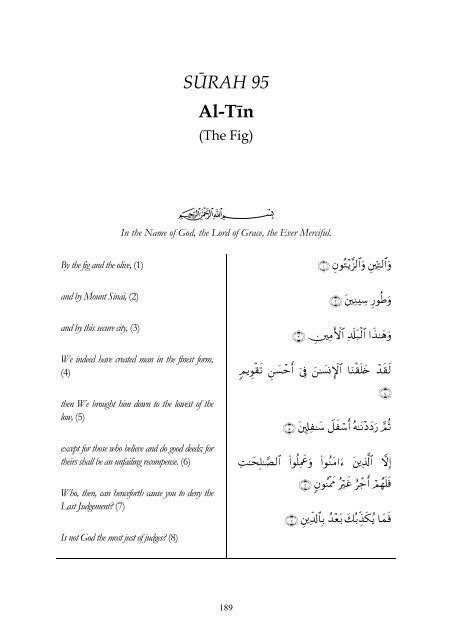 SŪRAH 95
Al-Tīn
(The Fig)
بِسْمِ ٱللَّهِ ٱلرَّحْمَٰنِ ٱلرَّحِيمِ
In the Name of God, the Lord of Grace, the Ever Merciful.
By the fig and the olive, (1)
and by Mount Sinai, (2)
and by this secure city, (3)
We indeed have created man in the finest form,
(4)
then We brought him down to the lowest of the
low, (5)
except for those who believe and do good deeds; for
theirs shall be an unfailing recompense. (6)
Who, then, can henceforth cause you to deny the
Last Judgement? (7)
Is not God the most just of judges? (8)
وَٱلتِّينِ وَٱلزَّيْتُونِ
وَطُورِ سِينِينَ
وَهَٰذَا ٱلْبَلَدِ ٱلْأَمِينِ
لَقَدْ خَلَقْنَا ٱلْإِنسَٰنَ فِىٓ أَحْسَنِ تَقْوِيمٍ
ثُمَّ رَدَدْنَٰهُ أَسْفَلَ سَٰفِلِينَ
إِلَّا ٱلَّذِينَ ءَامَنُوا۟ وَعَمِلُوا۟ ٱلصَّٰلِحَٰتِ
فَلَهُمْ أَجْرٌ غَيْرُ مَمْنُونٍ
فَمَا يُكَذِّبُكَ بَعْدُ بِٱلدِّينِ
189